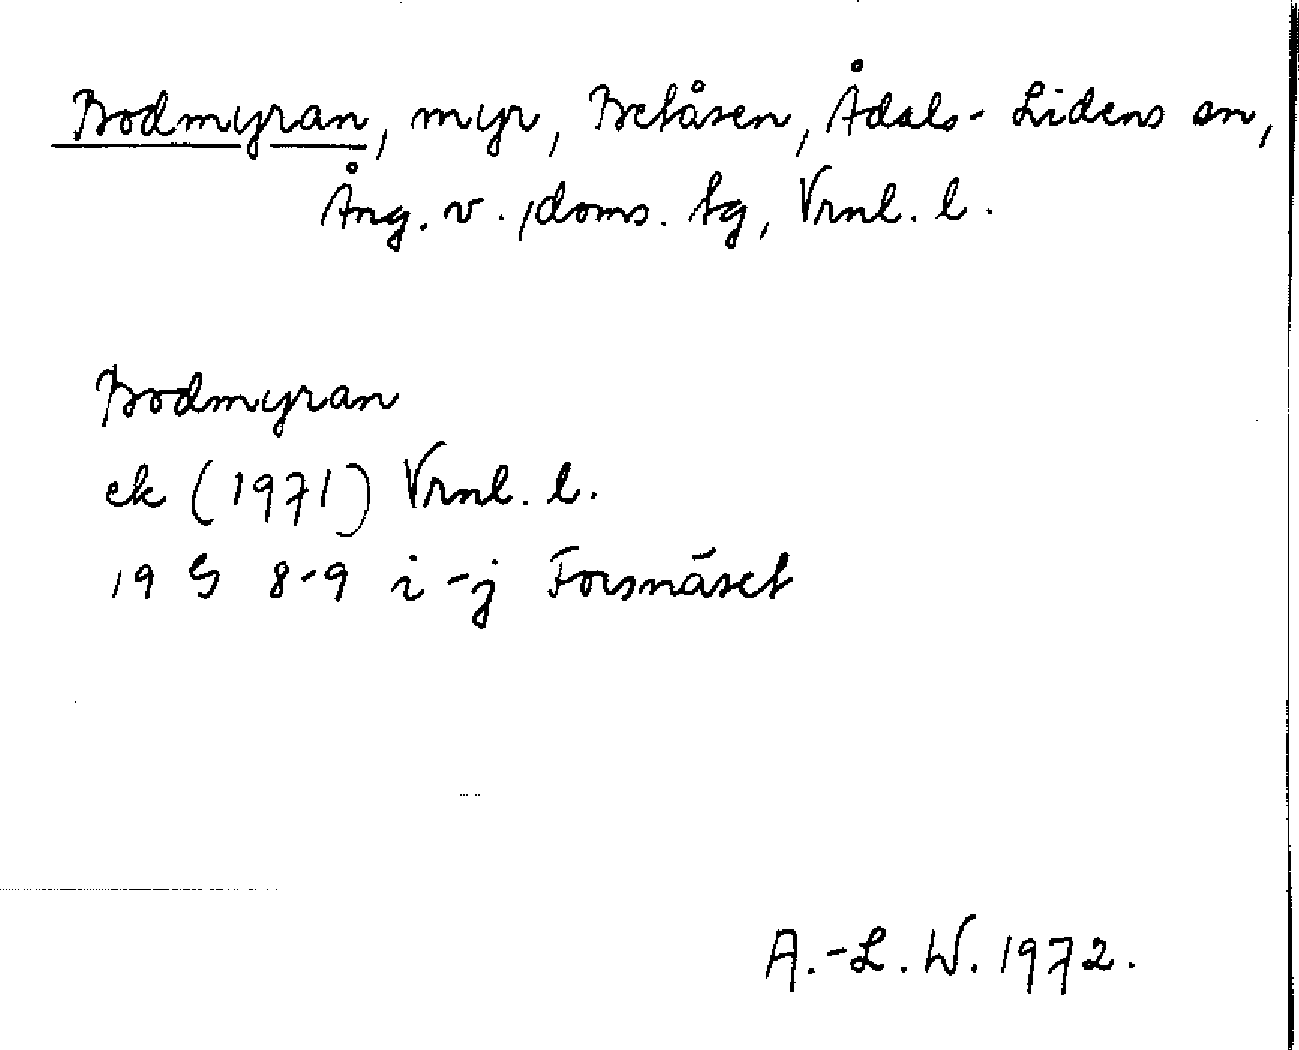 Bodmyran, myr, Betåsen, Ådals-Lidens sn,
Ång. v. doms. tg, Vrnl. l.
Bodmyran
ek (1971) Vrnl. l.
19 G 8-9 i-j Forsnäset
A.-L. W. 1972.